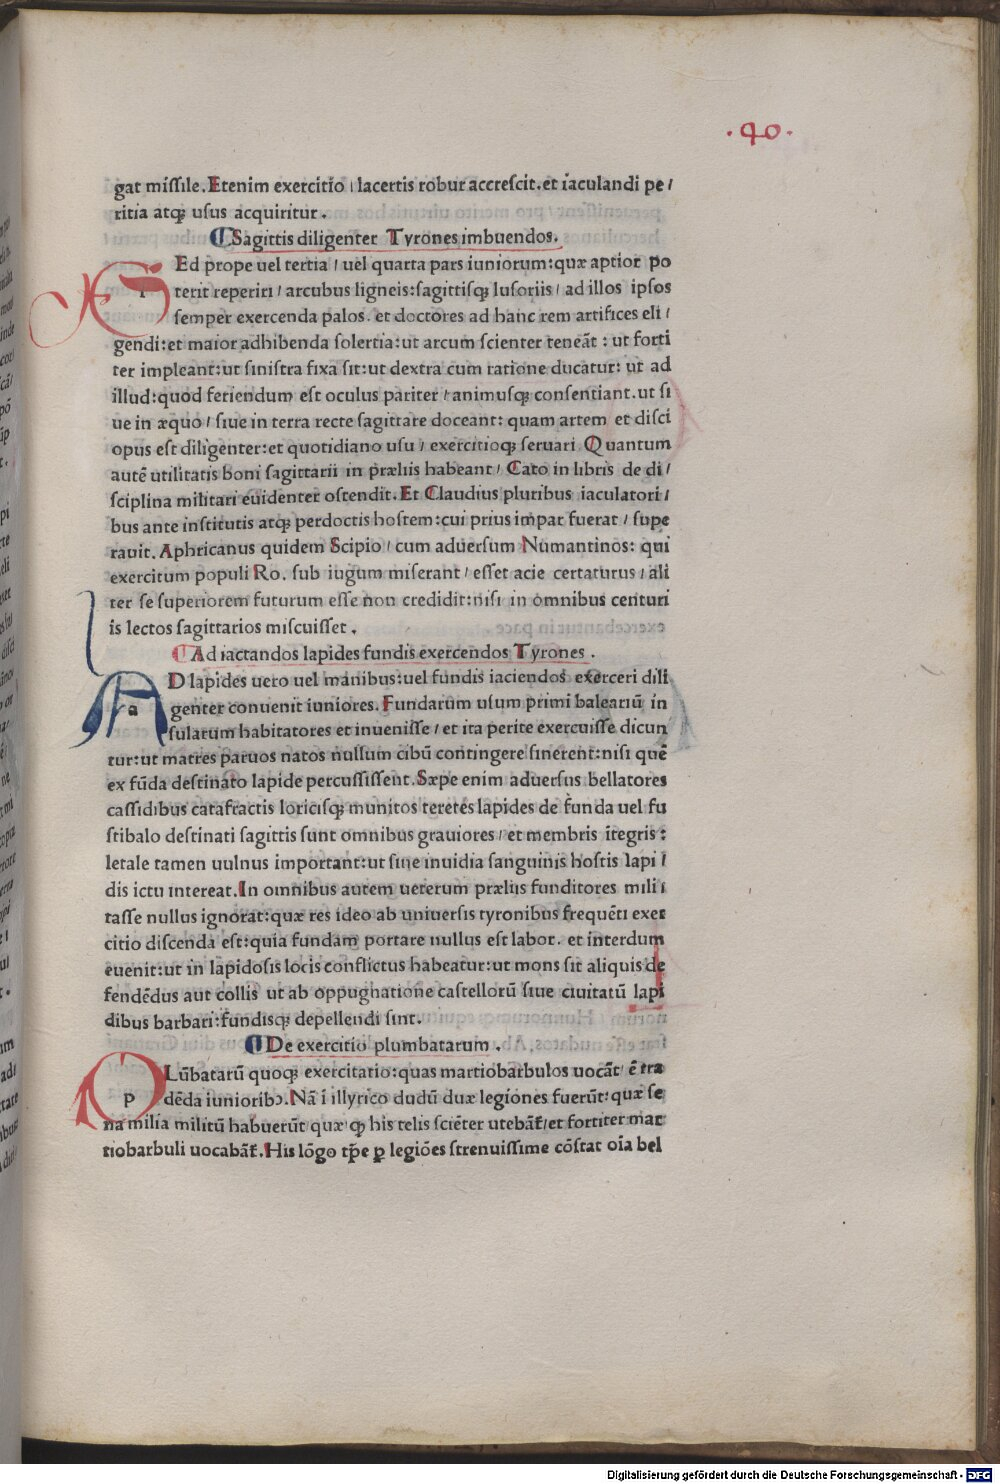 .40.
gat miſſile. Etenim exercitio / lacertis robur accreſcit. et iaculandi pe/
ritia atqꝫ uſus acquiritur.
Sagittis diligenter Tyrones imbuendos.
SEd prope uel tertia / uel quarta pars iuniorum: quæ aptior po
terit reperiri / arcubus ligneis: ſagittiſqꝫ luſoriis / ad illos ipſos
ſemper exercenda palos. et doctores ad hanc rem artifices eli/
gendi: et maior adhibenda ſolertia: ut arcum ſcienter teneāt: ut forti
ter impleant: ut ſiniſtra fixa ſit: ut dextra cum ratione ducatur: ut ad
illud: quod feriendum eſt oculus pariter / animuſqꝫ conſentiant. ut ſi
ue in æquo / ſiue in terra recte ſagittare doceant: quam artem et diſci
opus eſt diligenter: et quotidiano uſu / exercitioqꝫ ſeruari. Quantum
autē utilitatis boni ſagittarii in præliis habeant / Cato in libris de di/
ſciplina militari euidenter oſtendit. Et Claudius pluribus iaculatori/
bus ante inſtitutis atqꝫ perdoctis hoſtem: cui prius impar fuerat / ſupe
rauit. Aphricanus quidem Scipio / cum aduerſum Numantinos: qui
exercitum populi Ro. ſub iugum miſerant / eſſet acie certaturus / ali
ter ſe ſuperiorem futurum eſſe non credidit: niſi in omnibus centuri
is lectos ſagittarios miſcuiſſet.
Ad iactandos lapides fundis exercendos Tyrones.
AD lapides uero uel manibus: uel fundis iaciendos exerceri dili
genter conuenit iuniores. Fundarum uſum primi baleariū in
ſularum habitatores et inueniſſe / et ita perite exercuiſſe dicun
tur: ut matres paruos natos nullum cibū contingere ſinerent: niſi quē
ex fūda deſtinato lapide percuſſiſſent. Sæpe enim aduerſus bellatores
caſſidibus catafractis loriciſqꝫ munitos teretes lapides de funda uel fu
ſtibalo deſtinati ſagittis ſunt omnibus grauiores / et membris itegris:
letale tamen uulnus important: ut ſine inuidia ſanguinis hoſtis lapi/
dis ictu intereat. In omnibus autem ueterum præliis funditores mili/
taſſe nullus ignorat: quæ res ideo ab uniuerſis tyronibus frequēti exer
citio diſcenda eſt: quia fundam portare nullus eſt labor. et interdum
euenit: ut in lapidoſis locis conflictus habeatur: ut mons ſit aliquis de
fendēdus aut collis ut ab oppugnatione caſtellorū ſiue ciuitatū lapi
dibus barbari: fundiſqꝫ depellendi ſint.
De exercitio plumbatarum.
PLūbatarū quoqꝫ exercitatio: quas martiobarbulos uocāt / ē tra
dēda iunioribꝰ. Nā ī illyrico dudū duæ legiones fuerūt: quæ ſe
na milia militū habuerūt quæ qꝫ his telis ſciēter utebāt̄ / et fortiter mar
tiobarbuli uocabāt̄. His lōgo tp̄e ꝑ legiōes ſtrenuiſſime cōſtat oīa bel
Digitalisierung gefördert durch die Deutsche Forschungsgemeinschaft - DFG